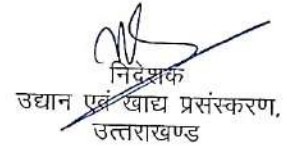 निदेशक
उद्यान एवं खाद्य प्रसंस्करण,
उत्तराखण्ड